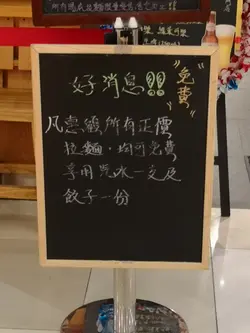 好消息!!
"免費"
凡惠顧所有正價
拉麵,均可免費
享用汽水一支及
餃子一份